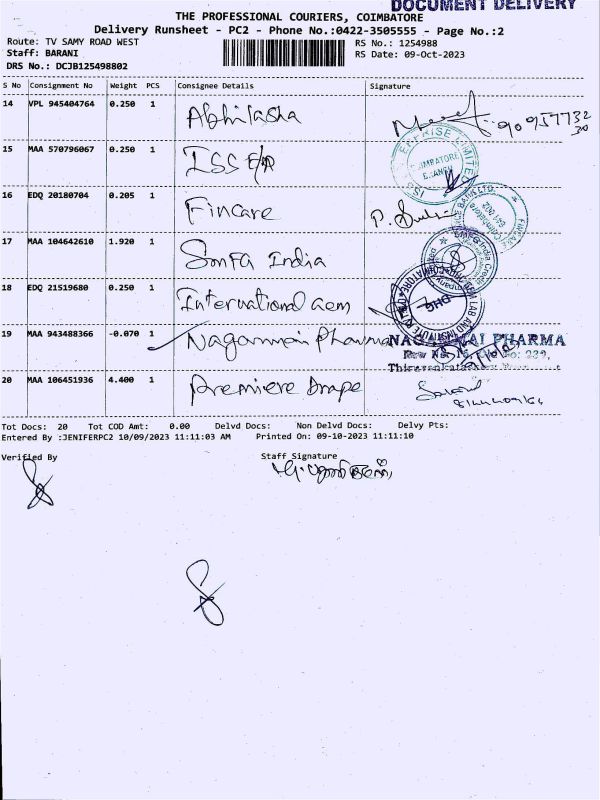 DOCUMENT DELIVERY
THE PROFESSIONAL COURIERS, COIMBATORE
Delivery Runsheet - PC2 - Phone No.:0422-3505555 - Page No.:2
Route: TV SAMY ROAD WEST RS No.: 1254988
Staff: BARANI RS Date: 09-Oct-2023
DRS No.: DCJB125498802
S No Consignment No Weight PCS Consignee Details Signature
14 VPL 945404764 0.250 1 Abhilasha
15 MAA 570796067 0.250 1 ISS
16 EDQ 20180704 0.205 1 Fincare
17 MAA 104642610 1.920 1 India
18 EDQ 21519680 0.250 1 International Gem
19 MAA 943488366 -0.070 1 Nagammai Pharma NAGAMMAI PHARMA
20 MAA 106451936 4.400 1 Premiere Drape
Tot Docs: 20 Tot COD Amt: 0.00 Delvd Docs: Non Delvd Docs: Delvy Pts:
Entered By :JENIFERPC2 10/09/2023 11:11:03 AM Printed On: 09-10-2023 11:11:10
Verified By Staff Signature